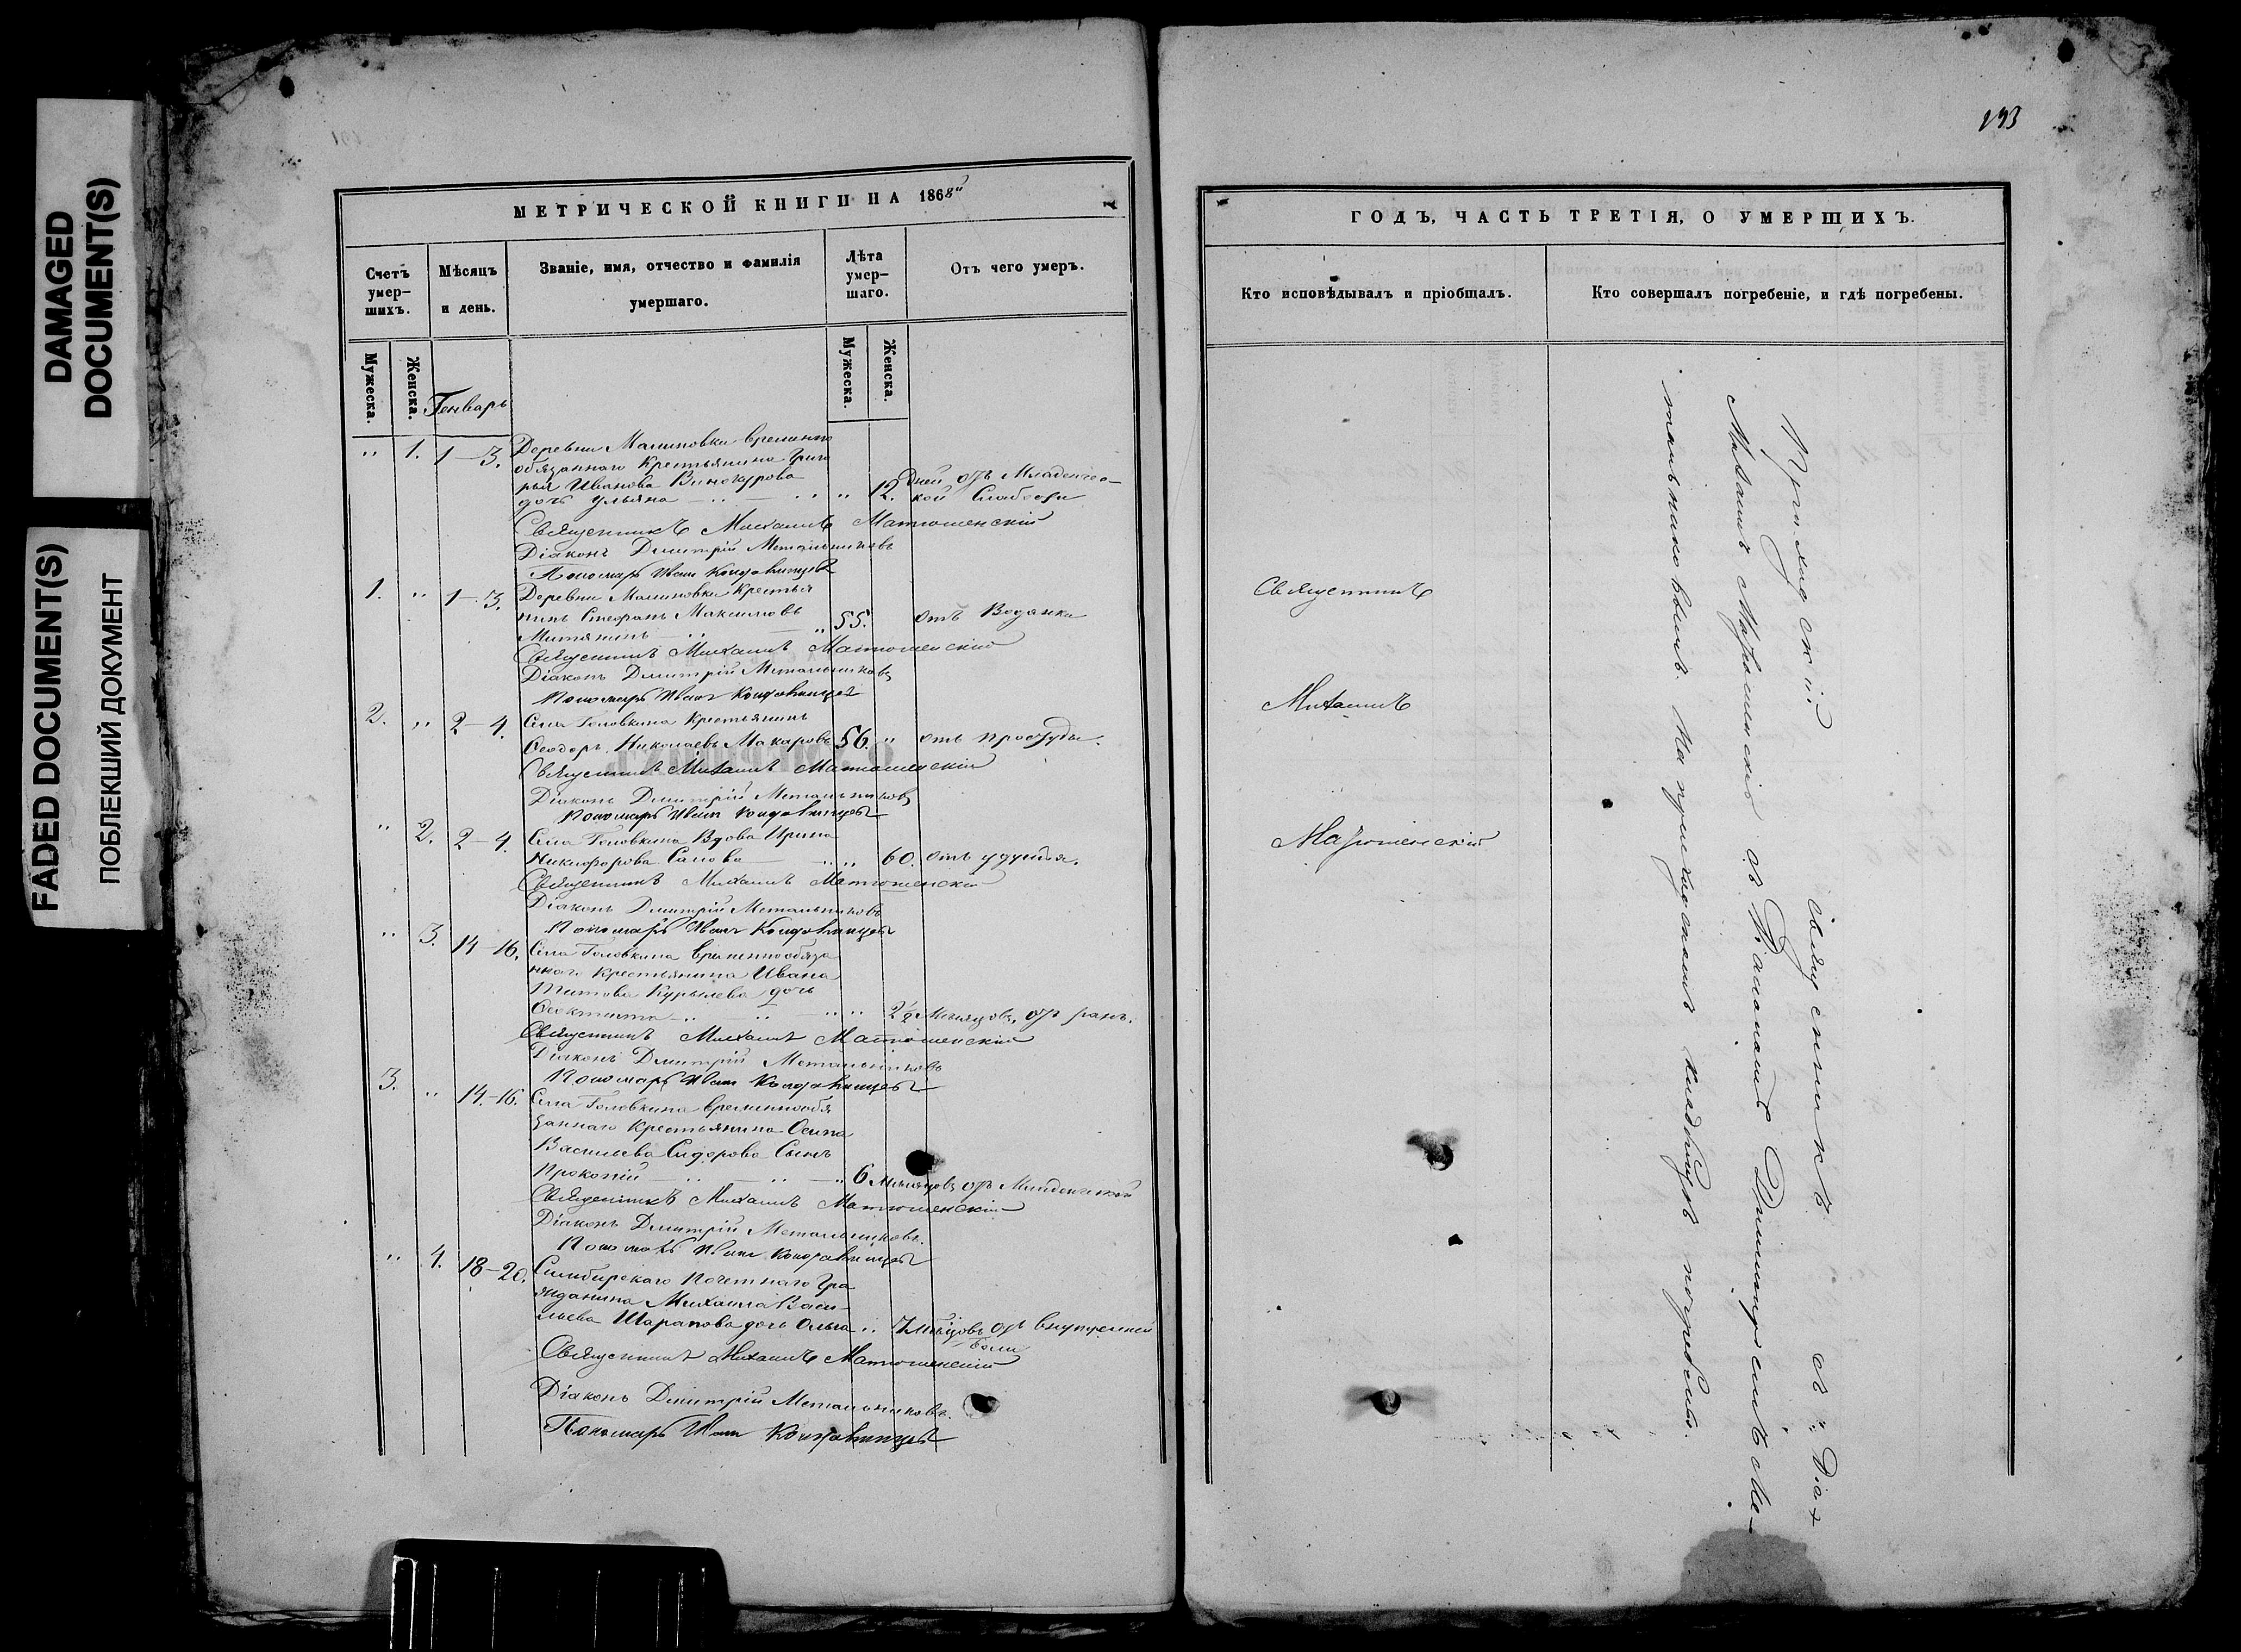 DAMAGED
DOCUMENT(S)
FADED DOCUMENT(S)
ПОБЛЕКШИЙ ДОКУМЕНТ
МЕТРИЧЕСКОЙ КНИГИ НА 1868й
Счетъ умер-шихъ.
Мѣсяцъ и день.
Званіе, имя, отчество и фамилія умершаго.
Лѣта умер-шаго.
Отъ чего умеръ.
Мужеска.
Женска.
Мужеска.
Женска.
Генварь
" 1. 1–3. Деревни Малиновки временно
обязаннаго Крестьянина Григо
рья Иванова Винокурова
дочь Ульяна " 12. Дней отъ Младенчес-
кой Слабости
Священникъ Михаилъ Матюшенскій
Діаконъ Димитрій Метальниковъ
Пономарь Иванъ
1. " 1–3. Деревни Малиновки Крестья
нинъ Стефанъ Максимовъ
Митянинъ " 55. отъ Водянки
Священникъ Михаилъ Матюшенскій
Діаконъ Димитрій Метальниковъ
Пономарь Иванъ
2. " 2–4. Села Головкина Крестьянинъ
Ѳеодоръ Николаевъ Макаровъ 56. " отъ простуды.
Священникъ Михаилъ Матюшенскій
Діаконъ Димитрій Метальниковъ
Пономарь Иванъ
" 2. 2–4. Села Головкина Вдова Ирина
Никифорова " 60. отъ удушья.
Священникъ Михаилъ Матюшенскій
Діаконъ Димитрій Метальниковъ
Пономарь Иванъ
" 3. 14–16. Села Головкина временнообяза
ннаго Крестьянина Ивана
Титова Курылева дочь
Ѳеоктиста " " 2½ Мѣсяцовъ, отъ ранъ.
Священникъ Михаилъ Матюшенскій
Діаконъ Димитрій Метальниковъ
Пономарь Иванъ
3. " 14–16. Села Головкина временнообя
заннаго Крестьянина Осипа
Васильева Сидорова Сынъ
Прокопій " 6 мѣсяцовъ отъ Младенческой
Священникъ Михаилъ Матюшенскій
Діаконъ Димитрій Метальниковъ.
Пономарь Иванъ
" 4. 18–20. Симбирскаго Почетнаго Гра
жданина Михаила Васи-
льева Шарапова дочь Ольга " 7 мѣсяцовъ отъ внутренней
боли
Священникъ Михаилъ Матюшенскій
Діаконъ Димитрій Метальниковъ.
Пономарь Иванъ
ГОДЪ, ЧАСТЬ ТРЕТІЯ, О УМЕРШИХЪ.
Кто исповѣдывалъ и пріобщалъ.
Кто совершалъ погребеніе, и гдѣ погребены.
Священникъ
Михаилъ
Матюшенскій
Приходскій священникъ съ Діа
Михаилъ Матюшенскій съ Діакономъ Димитріемъ Ме-
тальниковымъ. На приходскомъ кладбищѣ погребены.